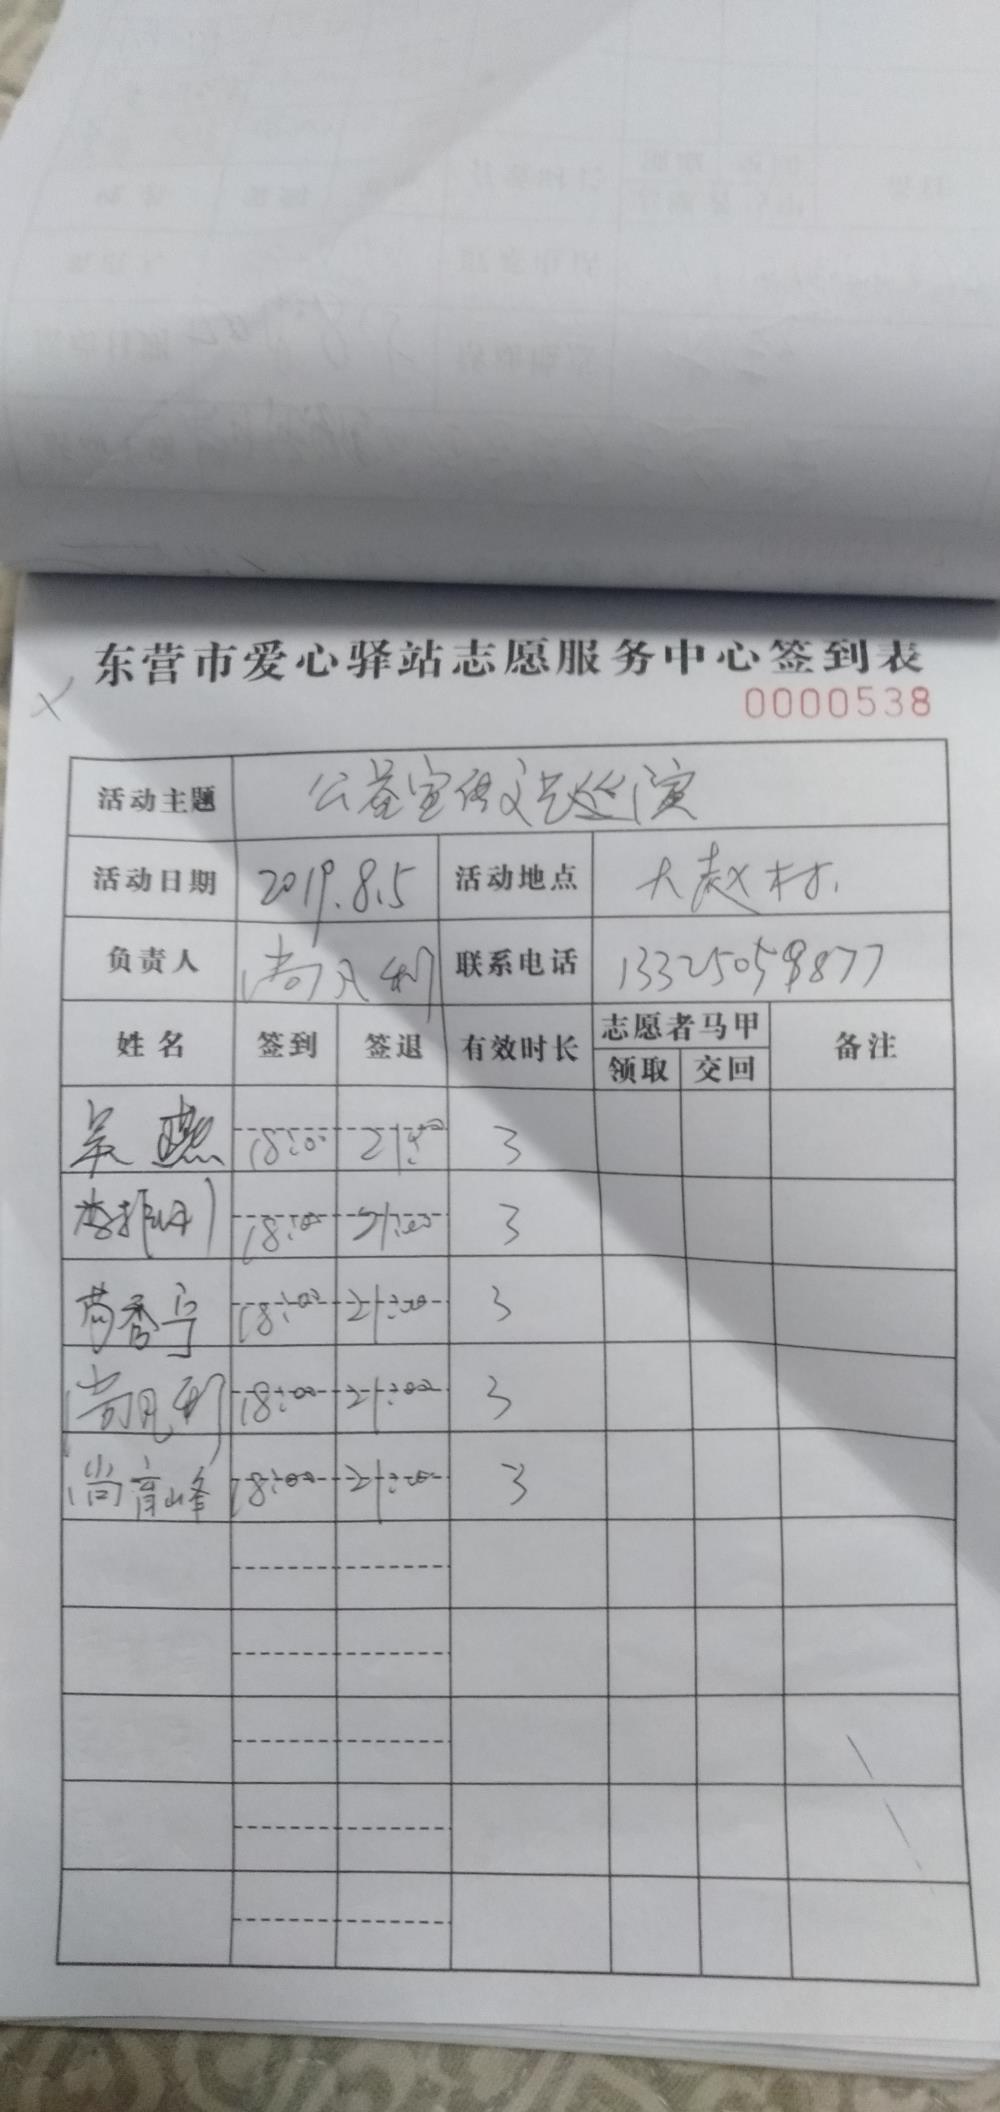 东营市爱心驿站志愿服务中心签到表
0000538
活动主题 公益宣传文艺巡演
活动日期 2019.8.5 活动地点 大赵村
负责人 尚凡利 联系电话 13325059877
姓名 签到 签退 有效时长 志愿者马甲 备注
领取 交回
吴燕 18:00 21:00 3
18:00 21:00 3
秀宁 18:00 21:00 3
尚凡利 18:00 21:00 3
尚育峰 18:00 21:00 3